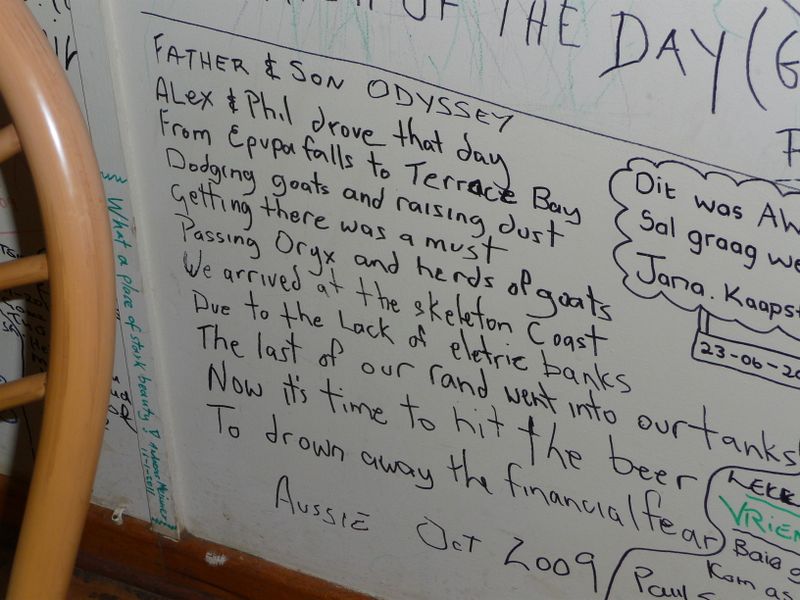 OF THE DAY (G
FATHER & SON ODYSSEY
ALex & Phil drove that day
From Epupa falls to Terrace Bay
Dodging goats and raising dust
Getting there was a must
Passing Oryx and herds of goats
We arrived at the skeleton Coast
Due to the Lack of eletric banks
The last of our rand went into our tanks
Now it's time to hit the beer
To drown away the financial fear
AUSSIE Oct 2009
What a place of stark beauty!
11-1-2011
Dit was AW
Sal graag we
Jana. Kaapst
23-06-20
LEKK
VRIEN
Baie g
Kom as
Paul S